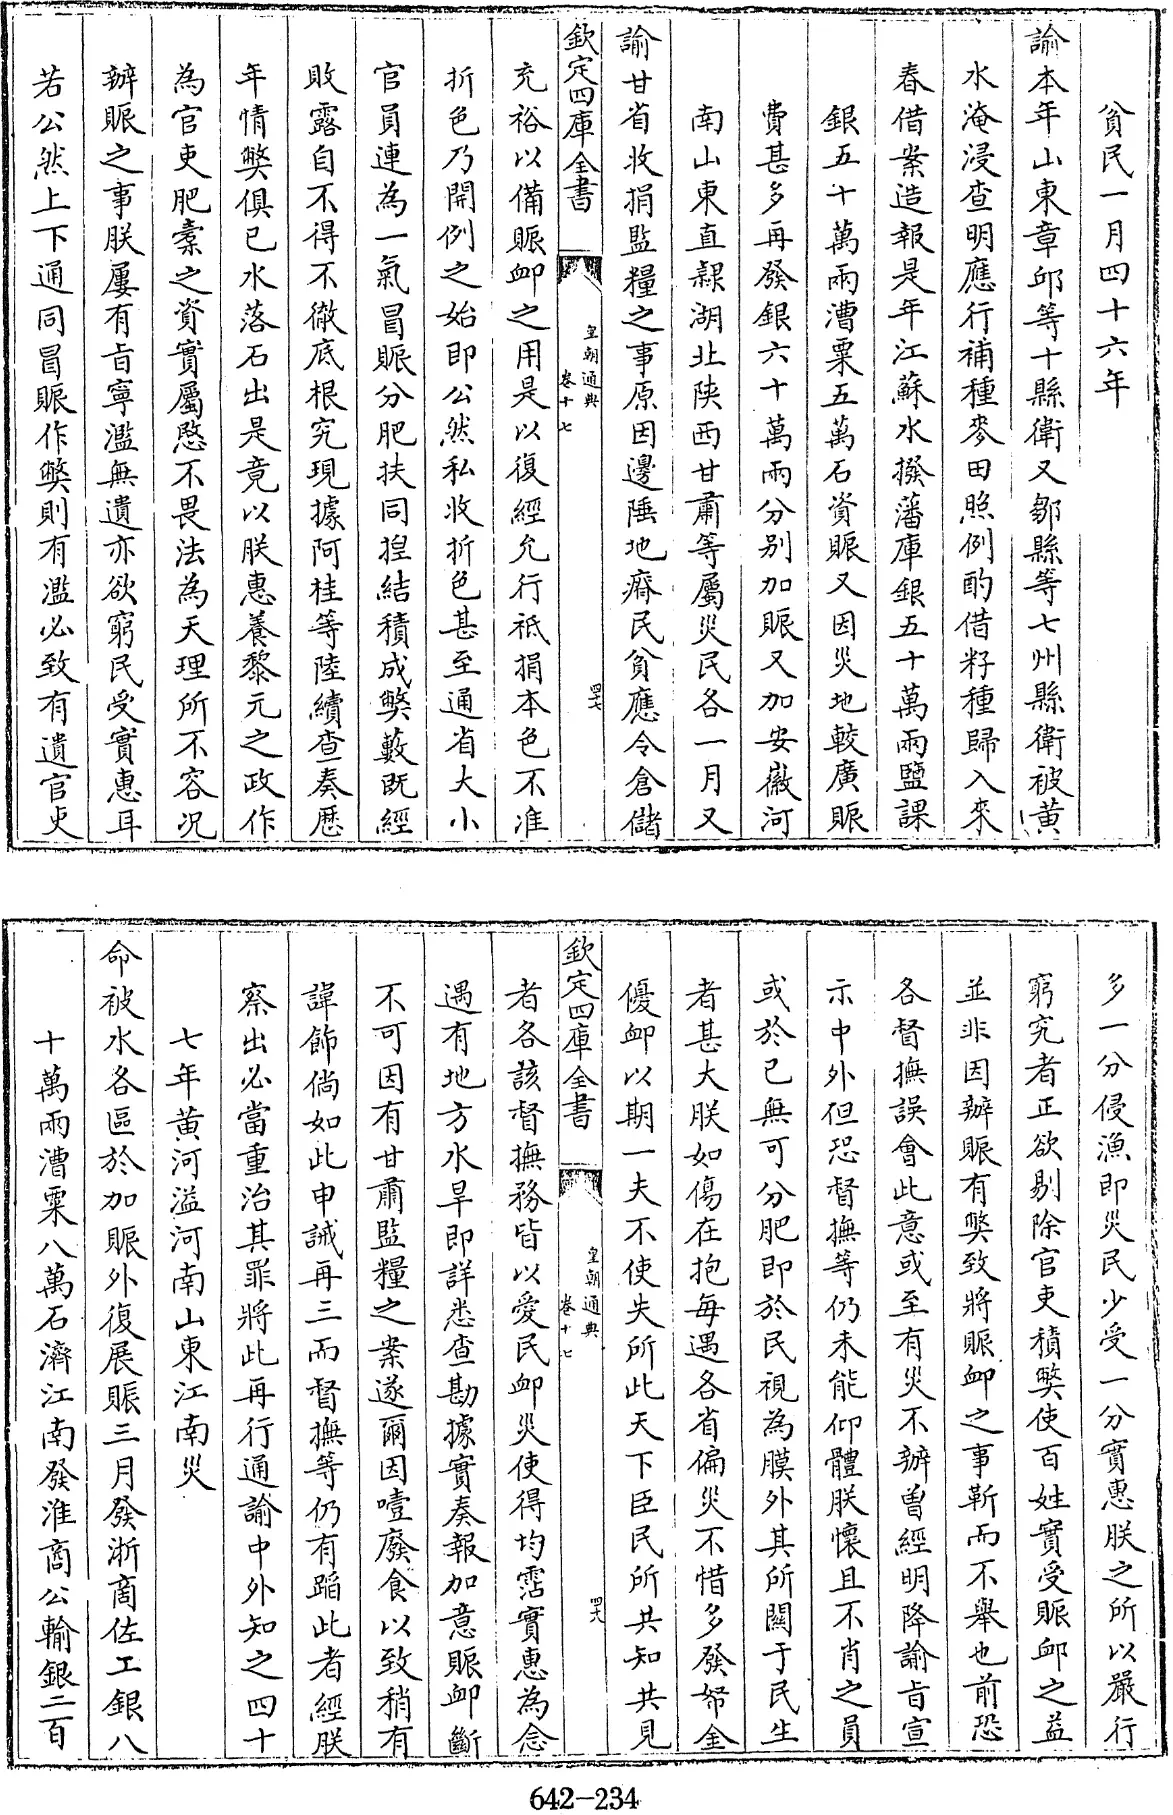 貧民一月四十六年
諭本年山東章邱等十縣衛又鄒縣等七州縣衛被黃
水淹浸查明應行補種麥田照例酌借籽種歸入來
春借案造報是年江蘇水撥藩庫銀五十萬兩鹽課
銀五十萬兩漕粟五萬石資賑又因災地較廣賑
費甚多再發銀六十萬兩分別加賑又加安徽河
南山東直隸湖北陝西甘肅等屬災民各一月又
諭甘省收捐監糧之事原因邊陲地瘠民貧應令倉儲
欽定四庫全書
皇朝通典
卷十七
四七
充裕以備賑卹之用是以復經允行祗捐本色不准
折色乃開例之始即公然私收折色甚至通省大小
官員連為一氣冒賑分肥扶同揑結積成弊藪既經
敗露自不得不徹底根究現據阿桂等陸續查奏歷
年情弊俱已水落石出是竟以朕惠養黎元之政作
為官吏肥橐之資實屬愍不畏法為天理所不容況
辦賑之事朕屢有㫖寧濫無遺亦欲窮民受實惠耳
若公然上下通同冒賑作弊則有濫必致有遺官吏
多一分侵漁即災民少受一分實惠朕之所以嚴行
窮究者正欲剔除官吏積弊使百姓實受賑卹之益
並非因辦賑有弊致將賑卹之事靳而不舉也前恐
各督撫誤會此意或至有災不辦曽經明降諭㫖宣
示中外但恐督撫等仍未能仰體朕懷且不肖之員
或於已無可分肥即於民視為膜外其所關于民生
者甚大朕如傷在抱每遇各省偏災不惜多發帑金
優卹以期一夫不使失所此天下臣民所共知共見
欽定四庫全書
皇朝通典
卷十七
四六
者各該督撫務皆以愛民卹災使得均霑實惠為念
遇有地方水旱即詳悉查勘據實奏報加意賑卹斷
不可因有甘肅監糧之案遂爾因噎廢食以致稍有
諱飾倘如此申誡再三而督撫等仍有蹈此者經朕
察出必當重治其罪將此再行通諭中外知之四十
七年黃河溢河南山東江南災
命被水各區於加賑外復展賑三月發浙商佐工銀八
十萬兩漕粟八萬石濟江南發淮商公輸銀二百
642-234